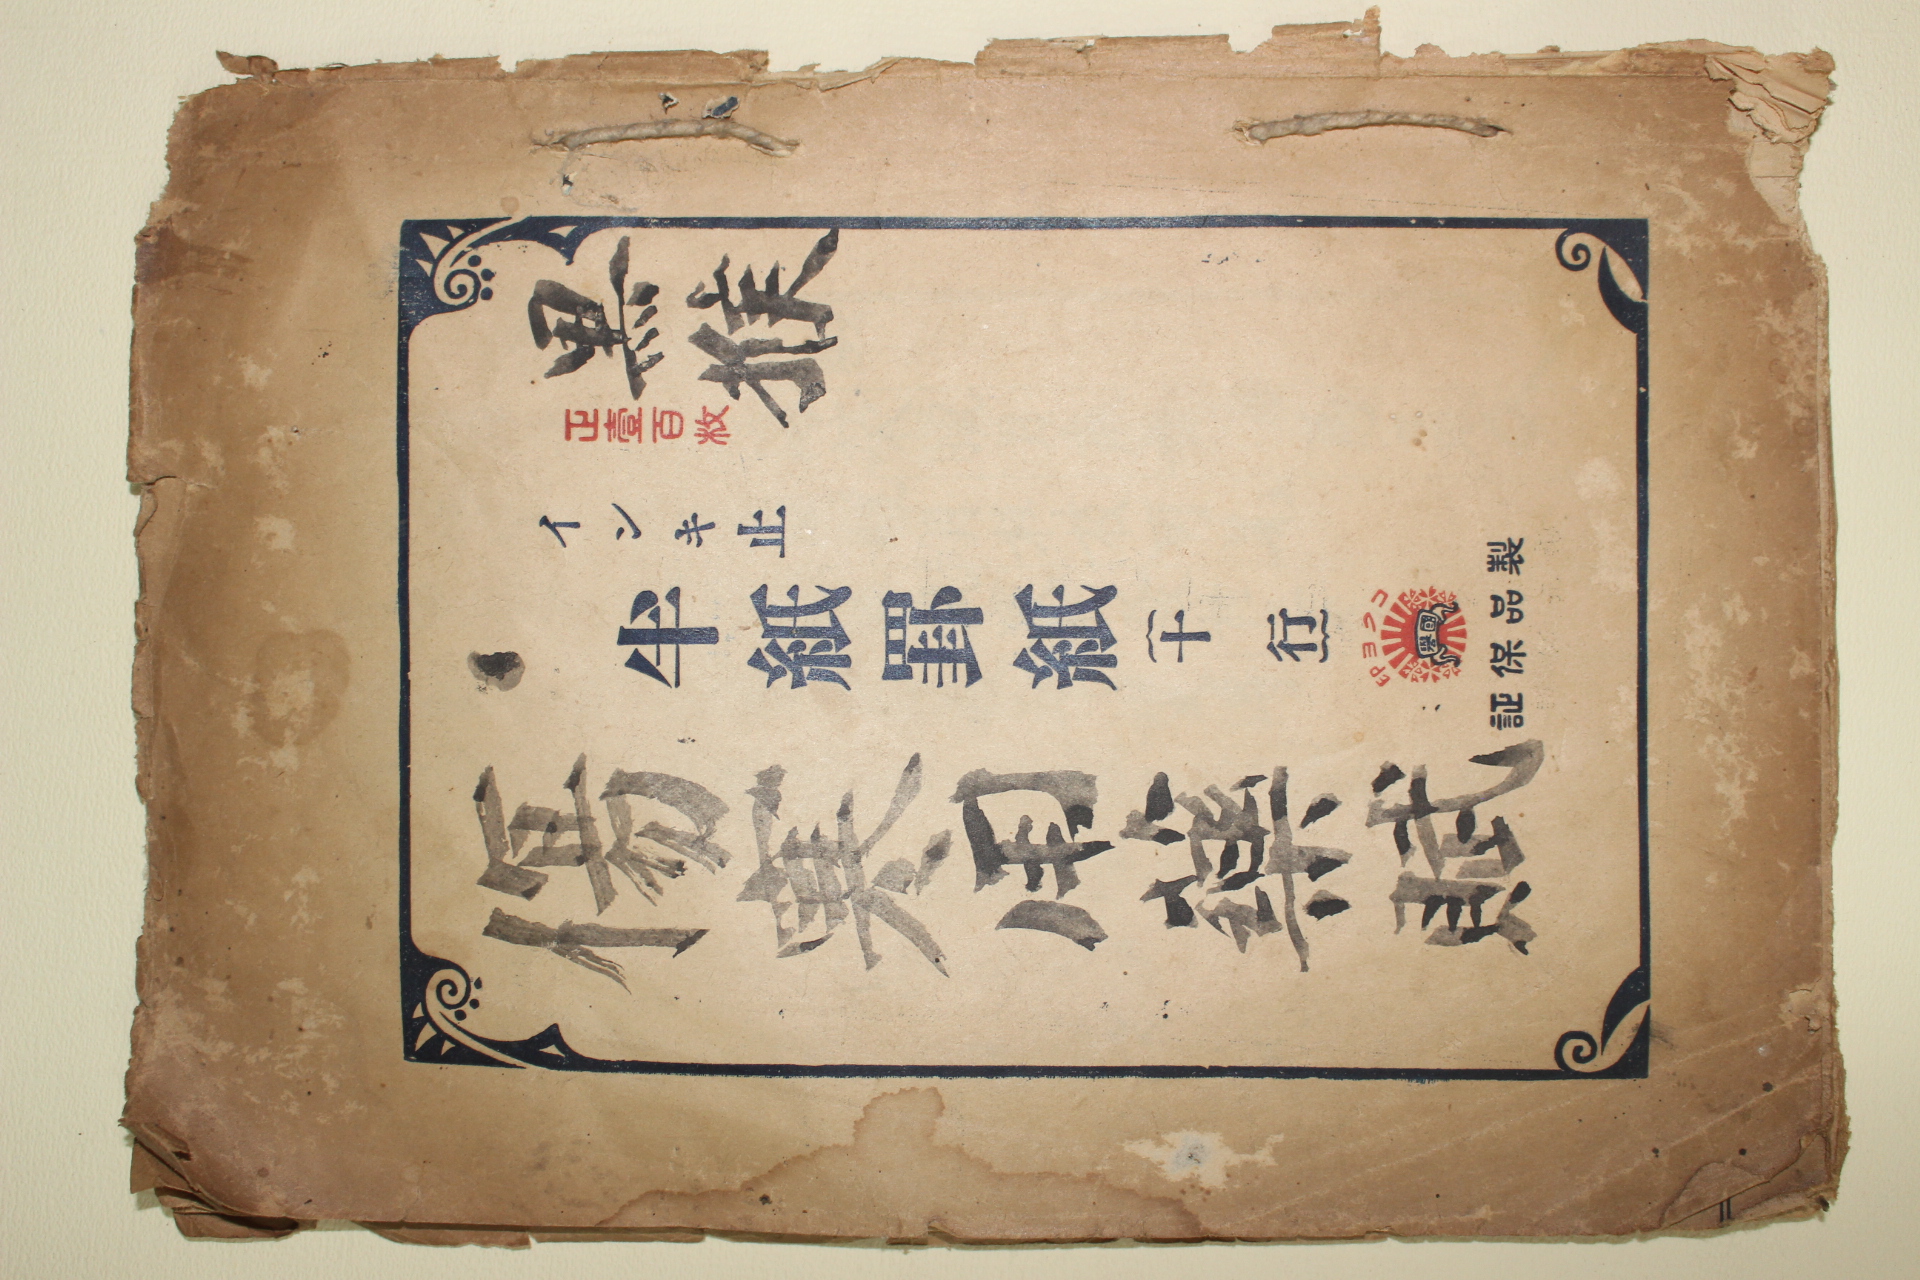 黒猴
正壹百枚
インキ止
半紙罫紙(十行)
コクヨ印
國譽
製品保証
傷寒用藥賦